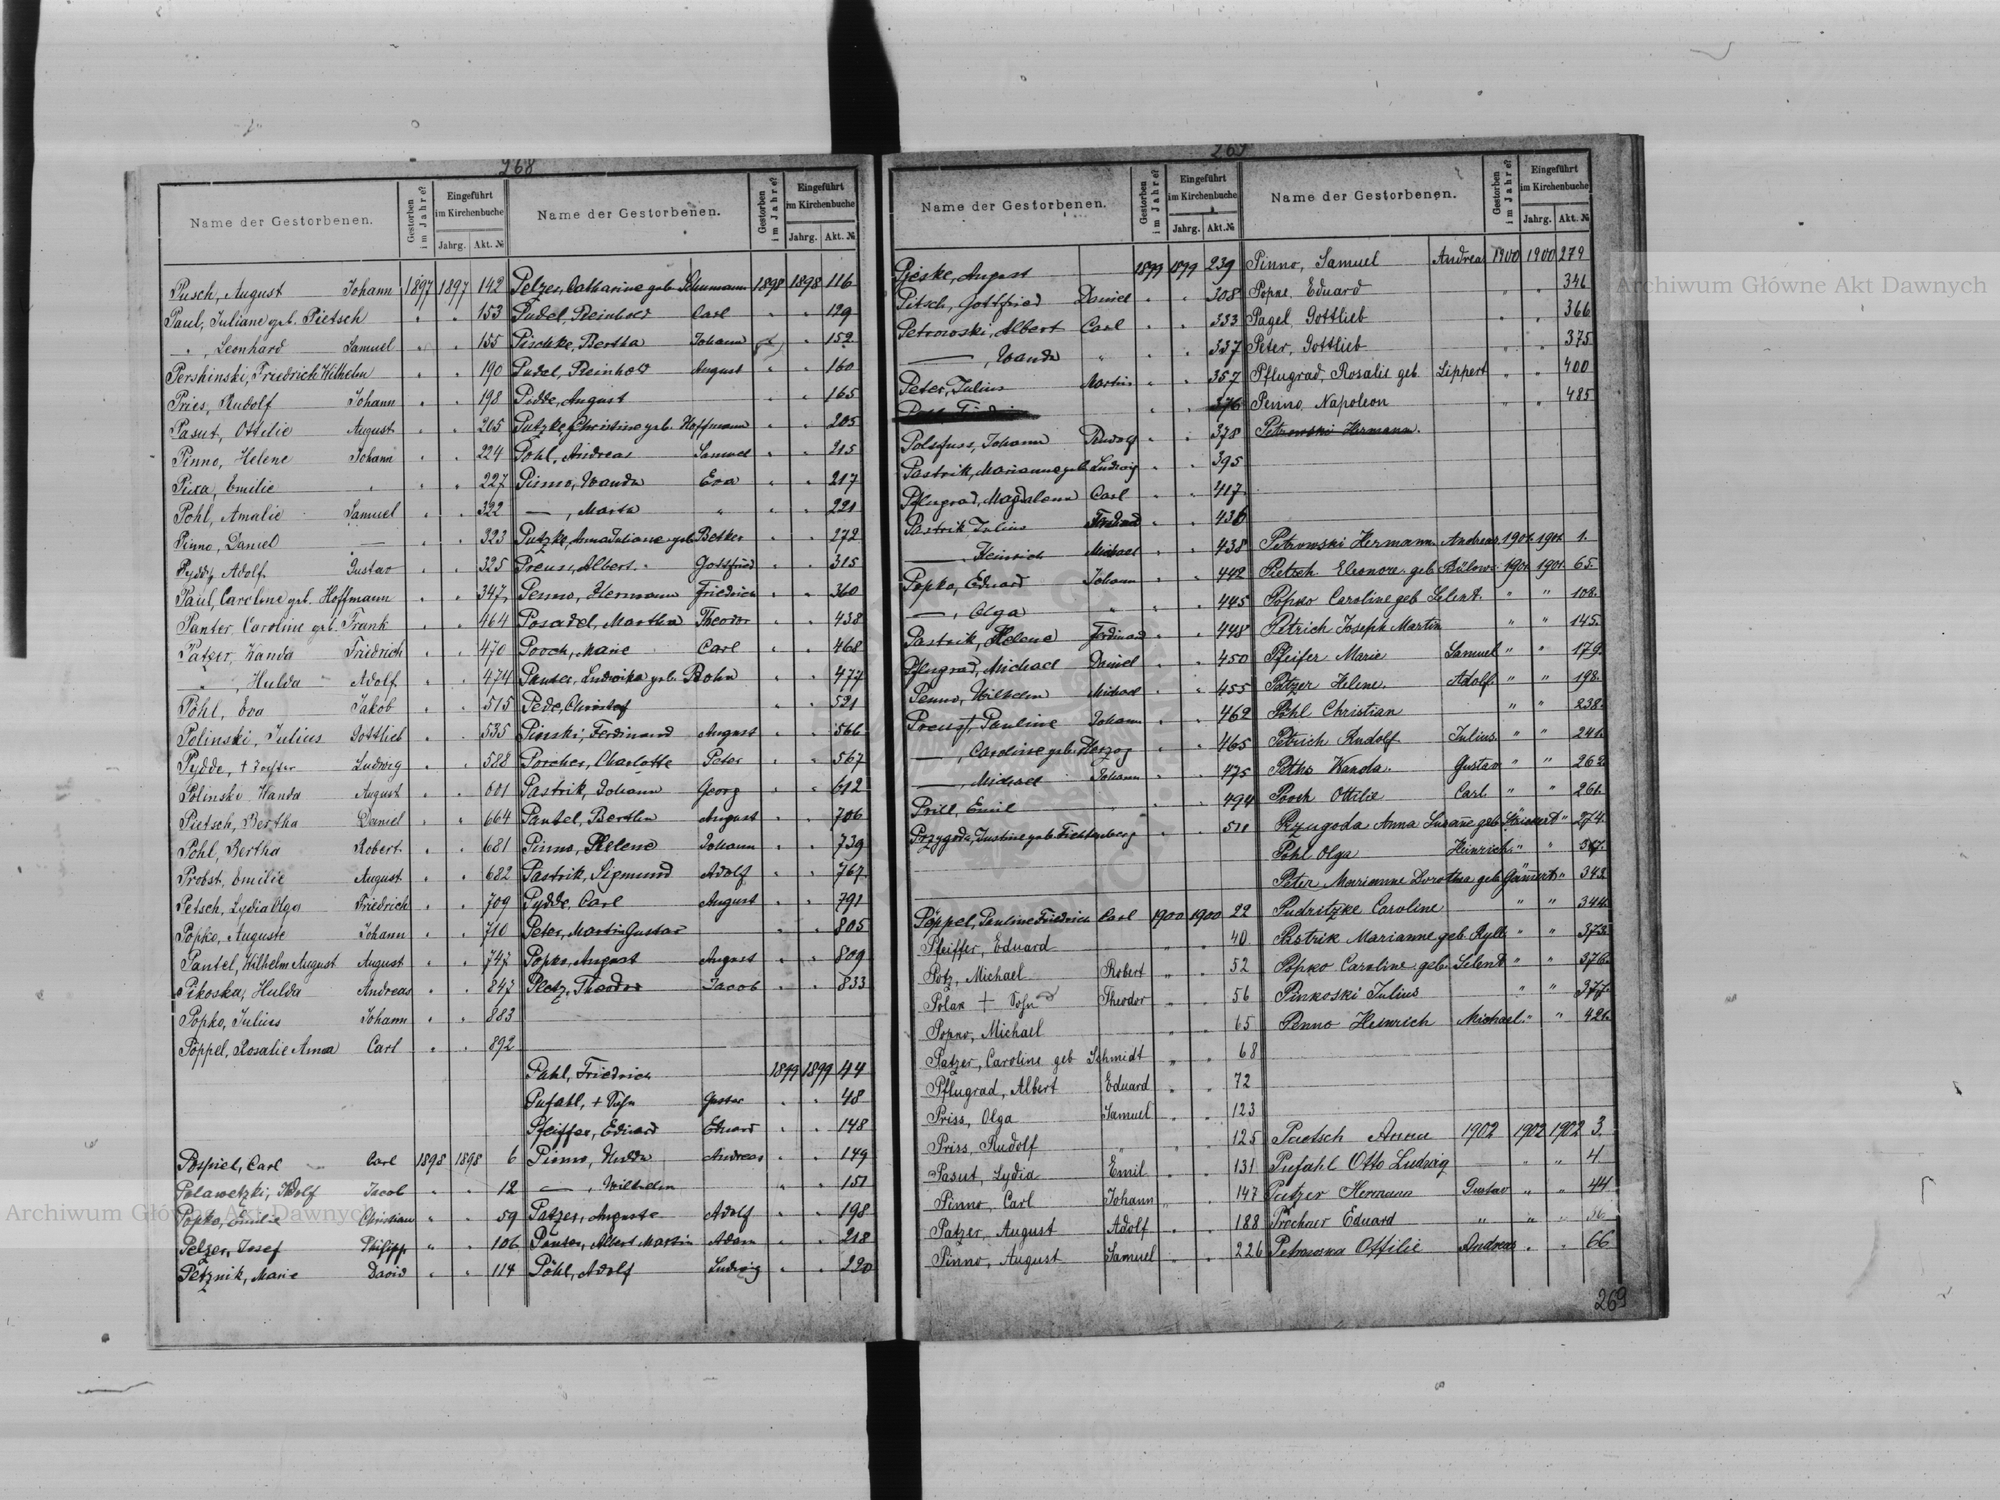 268
Name der Gestorbenen. Gestorben im Jahre? Eingeführt im Kirchenbuche Jahrg. Akt. №
Pusch, August Johann 1897 1897 142
Paul, Juliane geb. Pietsch " " 153
" , Leonhard Samuel " " 155
Pershinski, Friedrich Wilhelm " " 190
Pries, Rudolf Johann " " 198
Pasut, Ottilie August " " 205
Pinno, Helene Johann " " 224
Pixa, Emilie " " " 227
Pohl, Amalie Samuel " " 322
Pinno, Daniel — " " 323
Pydde, Adolf Gustav " " 325
Paul, Careline geb. Hoffmann " " 347
Panter, Caroline geb. Frank " " 464
Patzer, Wanda Friedrich " " 470
" , Hulda Adolf " " 474
Pohl, Eva Jakob " " 515
Polinski, Julius Gottlieb " " 535
Pydde, + Tochter Ludwig " " 588
Polinski Wanda August " " 601
Pietsch, Bertha Daniel " " 664
Pohl, Bertha Robert " " 681
Probst, Emilie August " " 682
Petsch, Lydia Olga Friedrich " " 709
Popko, Auguste Johann " " 710
Pantel, Wilhelm August August " " 747
Pikoska, Hulda Andreas " " 847
Popko, Julius Johann " " 883
Pöppel, Rosalie Anna Carl " " 892
Pospiel, Carl Carl 1898 1898 6
Polawetzki, Adolf Jacob " " 12
Popko, Emilie Christian " " 59
Pelzer, Josef Philipp " " 106
Petznik, Marie David " " 114
Name der Gestorbenen. Gestorben im Jahre? Eingeführt im Kirchenbuche Jahrg. Akt. №
Pelzer, Catharine geb. Schumann 1898 1898 116
Pudel, Reinhold Carl " " 129
Pischke, Bertha Johann " " 152
Pudel, Reinhold August " " 160
Pidde, August " " 165
Putzke, Christine geb. Hoffmann " " 205
Pohl, Andreas Samuel " " 215
Pinno, Wanda Eva " " 217
— , Marta " " " 221
Putzke, Anna Juliane geb. Betker " " 272
Preuss, Albert Gottfried " " 315
Penno, Hermann Friedrich " " 360
Posadel, Martha Theodor " " 438
Pooch, Marie Carl " " 468
Panter, Ludwika geb. Bohn " " 477
Pede, Christof " " 521
Pinski, Ferdinand August " " 566
Porcher, Charlotte Peter " " 567
Pastrik, Johann Georg " " 612
Pantel, Bertha August " " 706
Pinno, Helene Johann " " 739
Pastrik, Sigmund Adolf " " 767
Pydde, Carl August " " 791
Peter, Martin Gustav " " 805
Popko, August August " " 809
Pletz, Theodor Jacob " " 833
Pahl, Friedrich 1899 1899 44
Pufahl, + Sohn Gustav " " 48
Pfeiffer, Eduard Eduard " " 148
Pinno, Hulda Andreas " " 149
— , Wilhelm " " 151
Patzer, Auguste Adolf " " 198
Panter, Albert Martin Adam " " 218
Pöhl, Adolf Ludwig " " 220
269
Name der Gestorbenen. Gestorben im Jahre? Eingeführt im Kirchenbuche Jahrg. Akt. №
Pjeske, August 1899 1899 239
Pitsch, Gottfried Daniel " " 308
Petrowski, Albert Carl " " 333
— , Wanda " " " 337
Peter, Julius Martin " " 357
" " 376
Polsfuss, Johann Rudolf " " 378
Pastrik, Marianne geb. Ludwig " " 395
Pflugrad, Magdalena Carl " " 417
Pastrik Julius Ferdinand " " 436
— , Heinrich Michael " " 438
Popko, Eduard Johann " " 442
— , Olga " " " 445
Pastrik, Helene Ferdinand " " 448
Pflugrad, Michael Daniel " " 450
Penno, Wilhelm Michael " " 455
Preuss, Pauline Johann " " 462
— , Caroline geb. Herzog " " 465
— , Michael Johann " " 475
Prill, Emil " " 494
Przygoda, Justine geb. Fichtenberg " " 511
Pöppel, Pauline Friedrich Carl 1900 1900 22
Pfeiffer, Eduard " " 40
Potz, Michael Robert " " 52
Polax + Sohn Theodor " " 56
Popno, Michael " " 65
Patzer, Caroline geb Schmidt " " 68
Pflugrad, Albert Eduard " " 72
Priss, Olga Samuel " " 123
Priss, Rudolf " " " 125
Pasut, Lydia Emil " " 131
Pinno, Carl Johann " " 147
Patzer, August Adolf " " 188
Pinno, August Samuel " " 226
Name der Gestorbenen. Gestorben im Jahre? Eingeführt im Kirchenbuche Jahrg. Akt. №
Pinno, Samuel Andreas 1900 1900 279
Popne, Eduard " " 346
Pagel, Gottlieb " " 366
Peter, Gottlieb " " 375
Pflugrad, Rosalie geb. Lippert " " 400
Penno, Napoleon " " 485
Petrowski Hermann.
Petrowski Hermann Andreas 1901. 1901. 1.
Pietsch Eleonore geb. Bülow 1901. 1901. 65.
Popko Caroline geb Selent " " 108.
Petrich Joseph Martin " " 145.
Pfeifer Marie Samuel " " 179.
Patzer Helene. Adolf. " " 198.
Pohl Christian " " 238.
Petrich Rudolf Julius. " " 241.
Peths Wanda. Gustav " " 262.
Pooch Ottilie Carl. " " 261.
Pzugoda Anna Susanne geb. " " 274.
Pohl Olga Heinrich " "
Peter Marianne Dorothea geb. " 342.
Pudritzke Caroline " " 344.
Pastrik Marianne geb. Rylk " " 373.
Popko Caroline geb. Selent " " 376.
Pinkoski Julius " " 377.
Penno Heinrich Michael " " 426.
Paetsch Anna 1902 1902 1902 3.
Pufahl Otto Ludwig " " 4
Patzer Hermann Gustav " " 44
Prochner Eduard " " " 56
Petrowska Ottilie Andreas " " 66
269
Archiwum Główne Akt Dawnych
Archiwum Główne Akt Dawnych